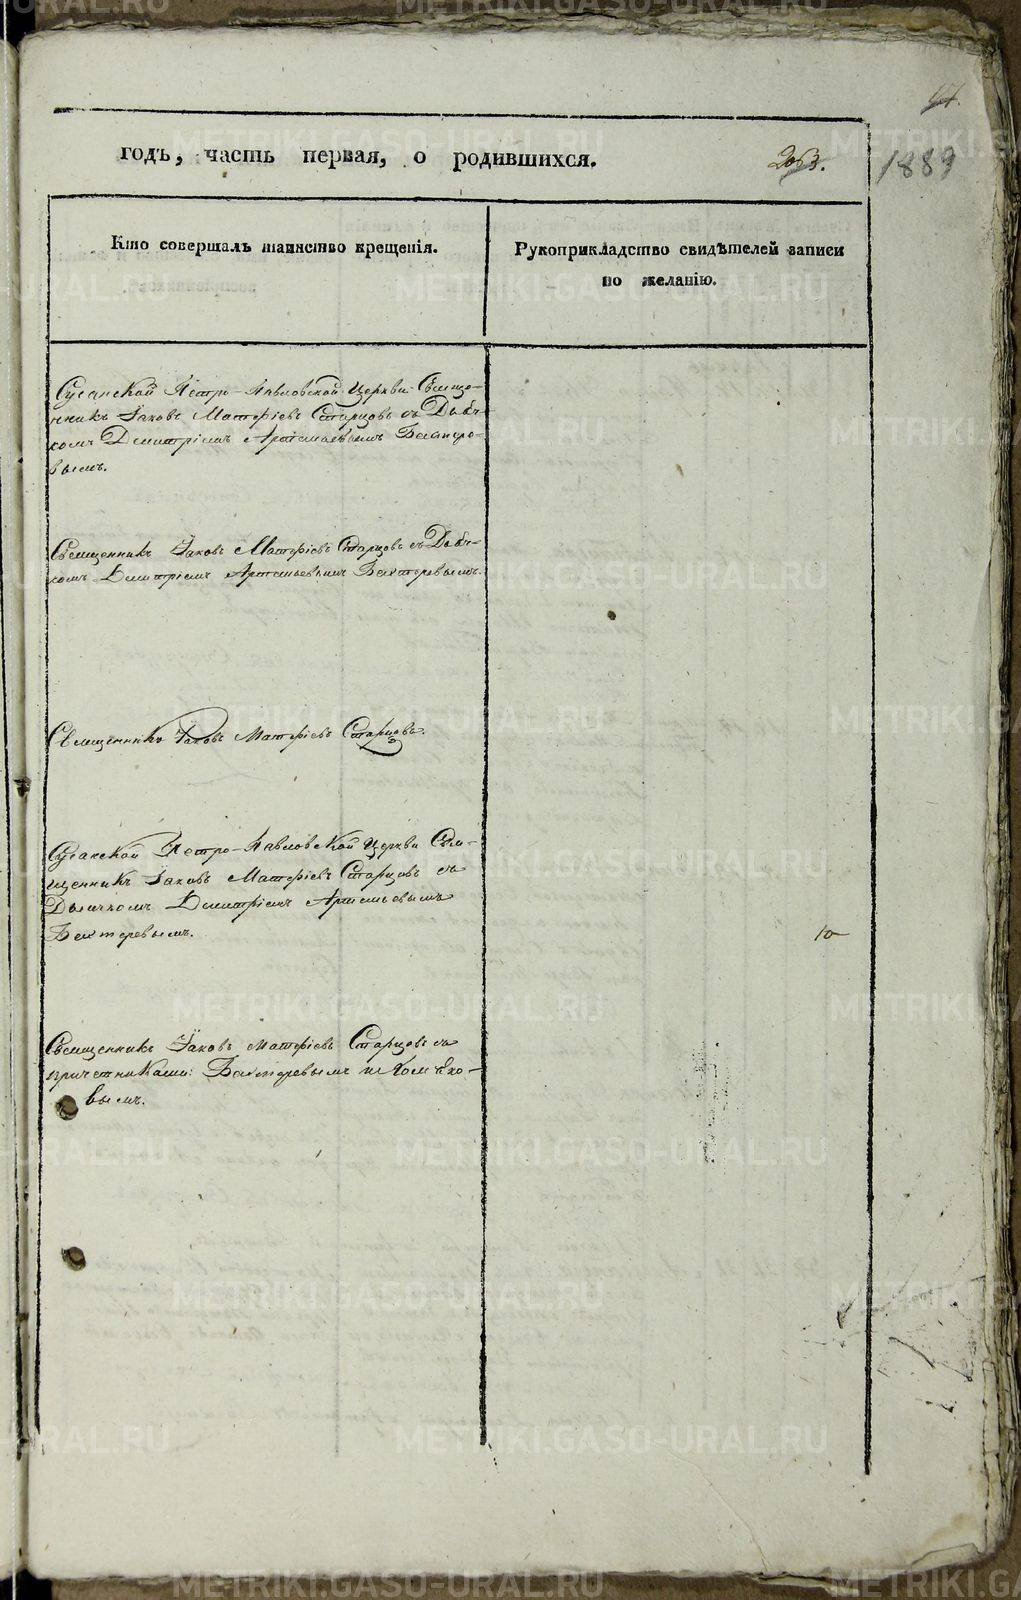 годъ, часть первая, о родившихся.
1889
Кто совершалъ таинство крещенія.
Рукоприкладство свидѣтелей записи
по желанію.
Сусанской Петро-Павловской Церкви Свяще-
нникъ Іаковъ Матѳіевъ Старцовъ съ Дьяч-
комъ Димитріемъ Артемьевымъ Бехтере-
вымъ.
Священникъ Іаковъ Матѳіевъ Старцовъ съ Дьяч-
комъ Димитріемъ Артемьевымъ Бехтеревымъ.
Священникъ Іаковъ Матѳіевъ Старцовъ.
Сусанской Петро-Павловской Церкви Свя-
щенникъ Іаковъ Матѳіевъ Старцовъ съ
Дьячкомъ Димитріемъ Артемьевымъ
Бехтеревымъ.
Священникъ Іаковъ Матѳіевъ Старцовъ съ
причетниками: Бехтеревымъ и Хомяко-
вымъ.
METRIKI.GASO-URAL.RU